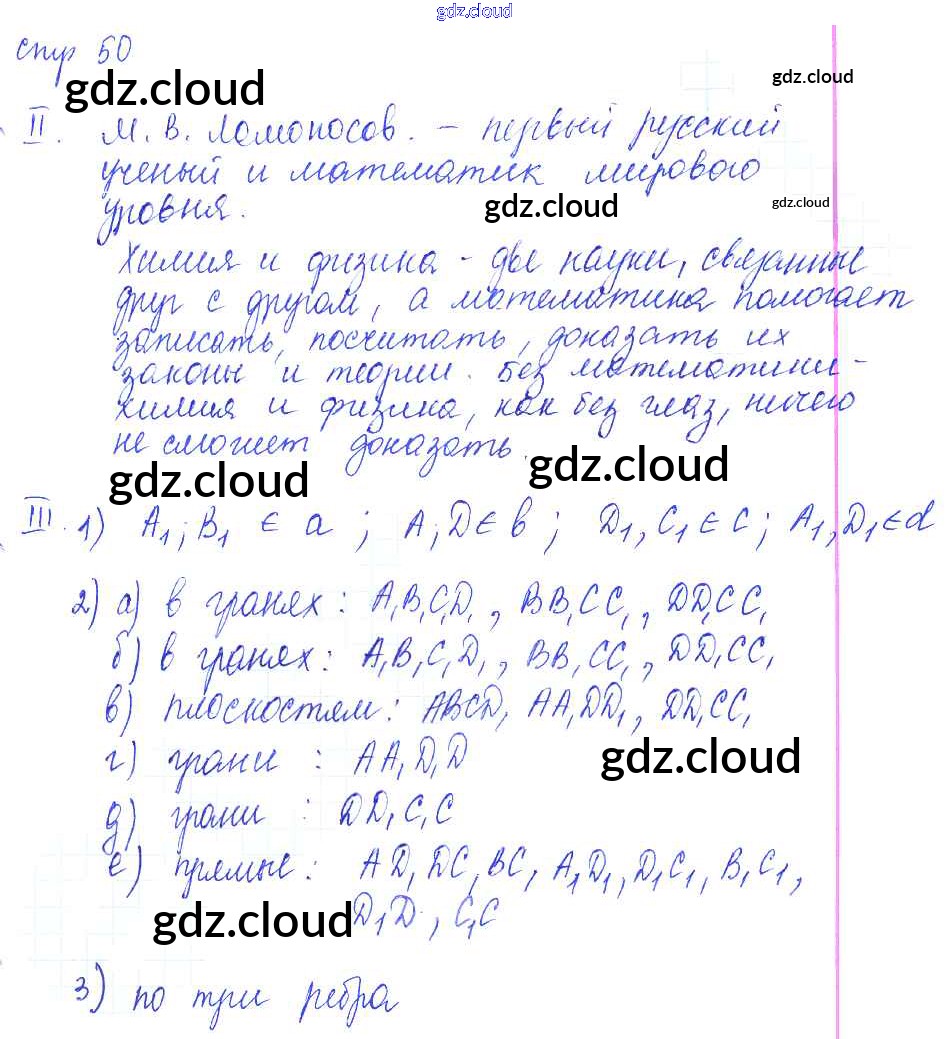 gdz.cloud
стр 50
gdz.cloud
gdz.cloud
II. М. В. Ломоносов. - первый русский
ученый и математик мирового
уровня.
gdz.cloud
gdz.cloud
Химия и физика - две науки, связанные
друг с другом, а математика помогает
записать, посчитать, доказать их
законы и теории. Без математики -
химия и физика, как без глаз, ничего
не сможет доказать.
gdz.cloud
gdz.cloud
III. 1) A₁; B₁ ∈ a ; A; D ∈ b ; D₁, C₁ ∈ c ; A₁, D₁ ∈ d
2) а) в гранях : A₁B₁C₁D₁ , BB₁CC₁ , DD₁CC₁
б) в гранях : A₁B₁C₁D₁ , BB₁CC₁ , DD₁CC₁
в) плоскостям : ABCD, AA₁DD₁ , DD₁CC₁
г) грани : AA₁D₁D
gdz.cloud
д) грани : DD₁C₁C
е) прямые : AD, DC, BC, A₁D₁, D₁C₁, B₁C₁,
D₁D , C₁C
gdz.cloud
3) по три ребра